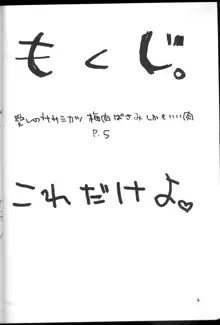 もくじ。
愛しのササミカツ 梅肉ばさみ しかも‥‥肉
P.5
これだけよ♡